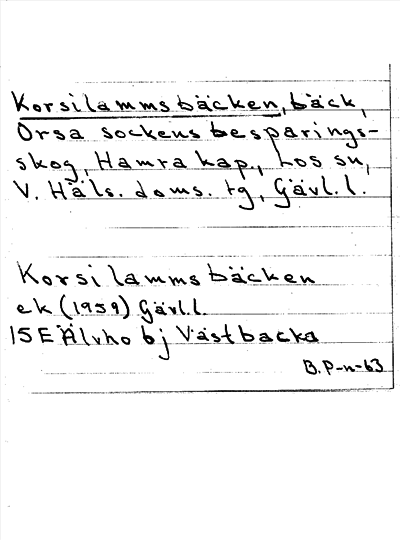 Korsilammsbäcken, bäck,
Orsa sockens besparings-
skog, Hamra kap., Los sn,
V. Häls. doms. tg, Gävl. l.
Korsilammsbäcken
ek (1959) Gävl. l.
15E Älvho bj Västbacka
B. P-n-63